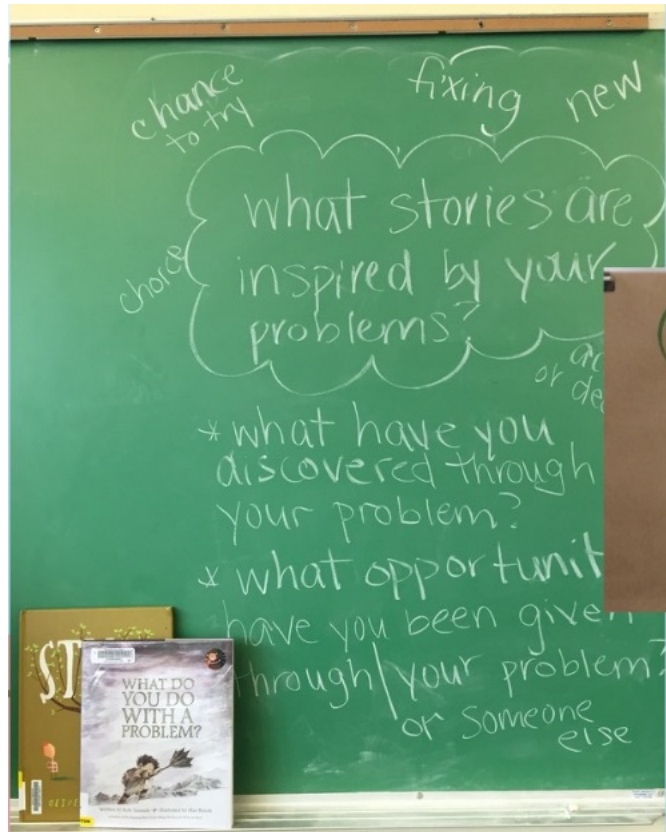 chance
to try
fixing
new
what stories are
inspired by your
problems?
choice
or
* what have you
discovered through
your problem?
* what
have you been given
through/your problem?
or someone
else
ST
WHAT DO
YOU DO
WITH A
PROBLEM?